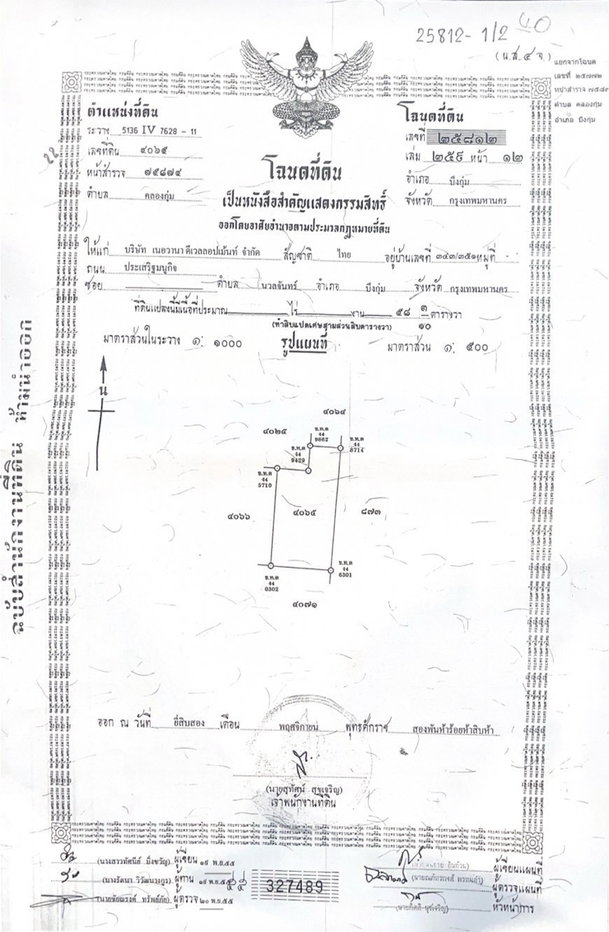 25812-1/2
(น.ส.๔ จ.)
แยกจากโฉนด
เลขที่ ๒๕๗๗๒
ตำบล คลองกุ่ม
อำเภอ บึงกุ่ม
ตำแหน่งที่ดิน
ระวาง 5136 IV 7628 - 11
เลขที่ดิน ๔๐๖๕
หน้าสำรวจ ๗๕๘๗๔
ตำบล คลองกุ่ม
โฉนดที่ดิน
เลขที่ ๒๕๘๑๒
เล่ม ๒๕๙ หน้า ๑๒
อำเภอ บึงกุ่ม
จังหวัด กรุงเทพมหานคร
โฉนดที่ดิน
เป็นหนังสือสำคัญแสดงกรรมสิทธิ์
ออกโดยอาศัยอำนาจตามประมวลกฎหมายที่ดิน
ให้แก่ บริษัท เนอวานา ดีเวลลอปเม้นท์ จำกัด สัญชาติ ไทย อยู่บ้านเลขที่ ๓๔๓/๓๕๑ หมู่ที่
ถนน ประเสริฐมนูกิจ
ซอย ตำบล นวลจันทร์ อำเภอ บึงกุ่ม จังหวัด กรุงเทพมหานคร
ที่ดินแปลงนี้มีเนื้อที่ประมาณ ไร่ งาน ๕๘ ๓/๑๐ ตารางวา
(ห้าสิบแปดเศษสามส่วนสิบตารางวา)
มาตราส่วนในระวาง ๑: ๑๐๐๐ รูปแผนที่ มาตราส่วน ๑: ๕๐๐
น
๔๐๖๔
๔๐๒๕
ข.ท.ด 44 9662
ข.ท.ด 44 8714
ข.ท.ด 44 9429
ข.ท.ด 44 5710
๔๐๖๖
๔๐๖๕
๘๗๓
ข.ท.ด 44 0302
ข.ท.ด 44 6301
๔๐๗๑
ฉบับสำนักงานที่ดิน ห้ามนำออก
ออก ณ วันที่ ยี่สิบสอง เดือน พฤศจิกายน พุทธศักราช สองพันห้าร้อยห้าสิบห้า
(นายสุทัศน์ สุขเจริญ)
เจ้าพนักงานที่ดิน
(นางสาวทัศนีย์ มิ่งขวัญ) ผู้เขียน ๑๙ พ.ย.๕๕
ผู้ทาน ๑๙ พ.ย.๕๕
ผู้ตรวจ ๒๐ พ.ย.๕๕
327489
ผู้เขียนแผนที่
ผู้ตรวจแผนที่
หัวหน้าการ